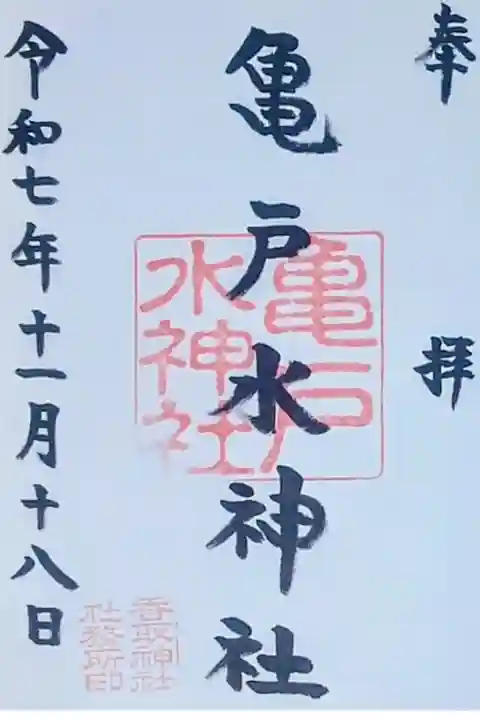 奉拝
亀戸水神社
亀戸
水神社
香取神社
社務所印
令和七年十一月十八日